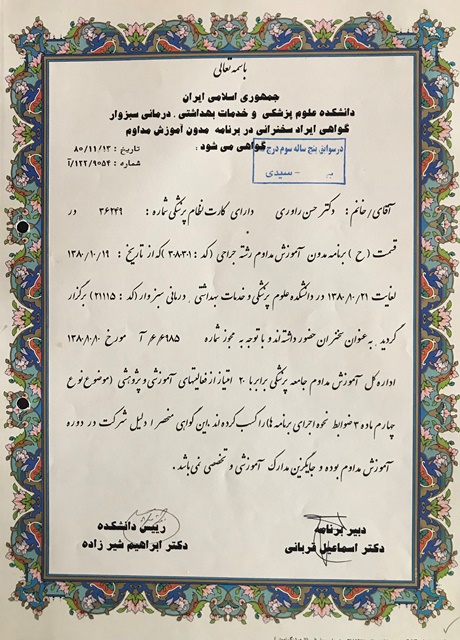 باسمه تعالی
جمهوری اسلامی ایران
دانشکده علوم پزشکی و خدمات بهداشتی . درمانی سبزوار
گواهی ایراد سخنرانی در برنامه مدون آموزش مداوم
تاریخ : ۸۰/۱۱/۱۳
گواهی می شود :
شماره : ۱۲۲/۹۰۵۴/آ
در سوابق پنج ساله سوم درج
سیدی
آقای/خانم : دکتر حسن راوری دارای کارت نظام پزشکی شماره : ۳۶۲۴۹ در
قسمت (ح) برنامه مدون آموزش مداوم رشته جراحی (کد : ۳۰۸-۳۰۱) که از تاریخ : ۱۳۸۰/۱۰/۱۹
لغایت ۱۳۸۰/۱۰/۲۱ در دانشکده علوم پزشکی و خدمات بهداشتی . درمانی سبزوار (کد : ۲۱۱۱۵) برگزار
گردید . به عنوان سخنران حضور داشته اند و با توجه به مجوز شماره ۶۰۶۹۸۵ آ مورخ ۱۳۸۰/۱۰/۱۰
اداره کل آموزش مداوم جامعه پزشکی برابر با ۲۰ امتیاز از فعالیتهای آموزشی و پژوهشی (موضوع نوع
چهارم ماده ۳ ضوابط نحوه اجرای برنامه ها را کسب کرده اند . این گواهی منحصرا دلیل شرکت در دوره
آموزش مداوم بوده و جایگزین مدارک آموزشی و تخصصی نمی باشد .
دبیر برنامه
دکتر اسماعیل قربانی
رییس دانشکده
دکتر ابراهیم شیر زاده